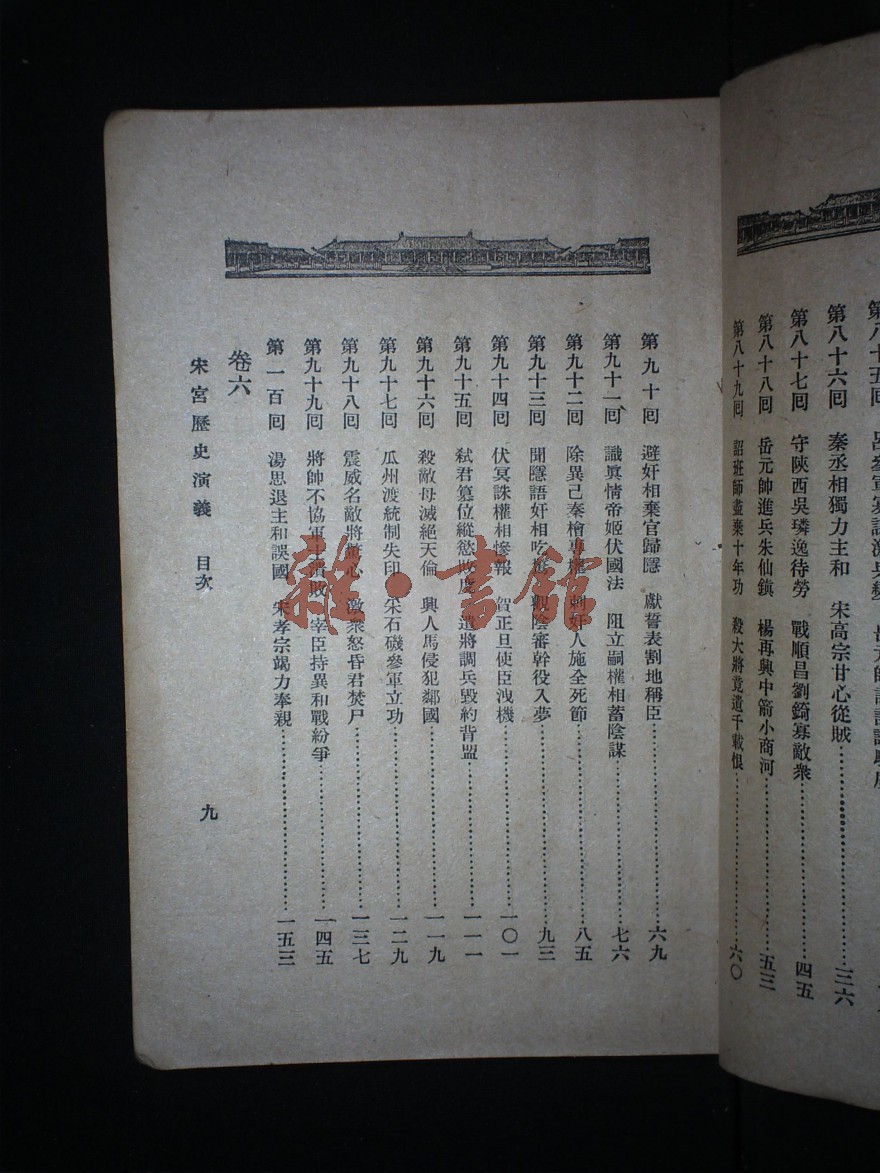 第八十六回　秦丞相獨力主和　宋高宗甘心從賊……三六
第八十七回　守陝西吳璘逸待勞　戰順昌劉錡寡敵衆……四五
第八十八回　岳元帥進兵朱仙鎮　楊再興中箭小商河……五三
第八十九回　詔班師盡棄十年功　殺大將竟遺千載恨……六〇
第九十回　避奸相棄官歸隱　獻誓表割地稱臣……六九
第九十一回　識眞情帝姬伏國法　阻立嗣權相蓄陰謀……七六
第九十二回　除異己秦檜專權　刺奸人施全死節……八五
第九十三回　聞隱語奸相吃驚　觀陰審幹役入夢……九三
第九十四回　伏冥誅權相慘報　賀正旦使臣洩機……一〇一
第九十五回　弒君篡位縱慾敗度　遣將調兵毀約背盟……一一一
第九十六回　殺敵母滅絕天倫　興人馬侵犯鄰國……一一九
第九十七回　瓜州渡統制失印　采石磯參軍立功……一二九
第九十八回　震威名敵將驚心　激衆怒昏君焚尸……一三七
第九十九回　將帥不協軍士潰敗　宰臣持異和戰紛爭……一四五
第一百回　湯思退主和誤國　宋孝宗竭力奉親……一五三
卷六
宋宮歷史演義　目次　九
雜·書館